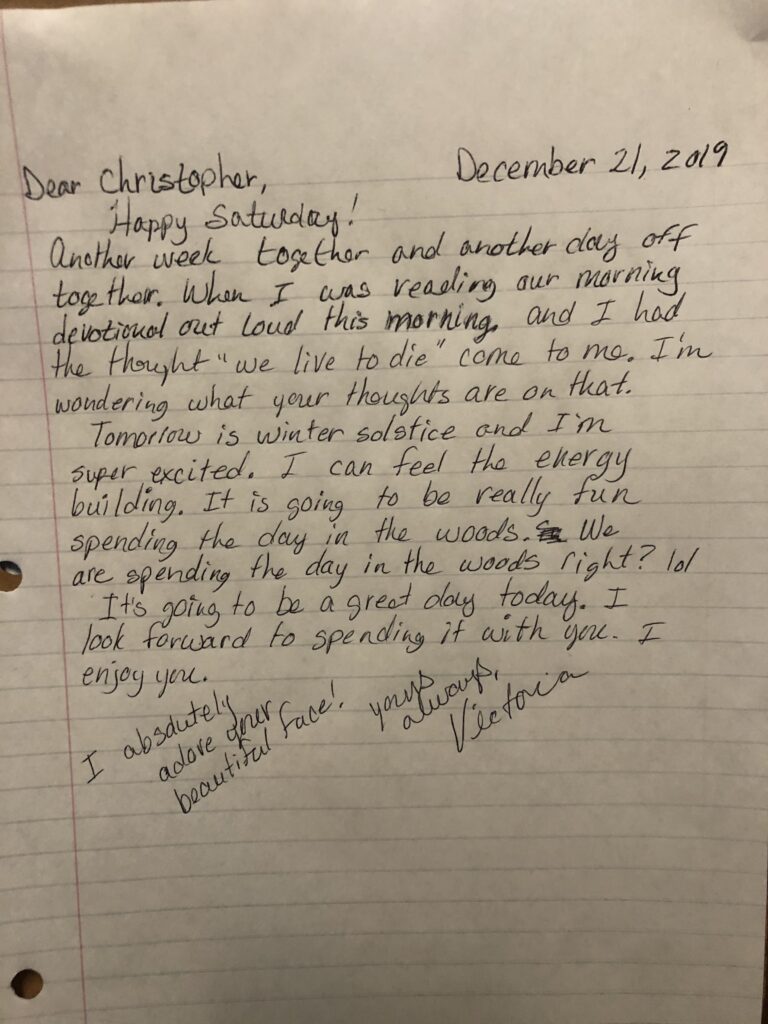 December 21, 2019
Dear Christopher,
Happy Saturday!
Another week together and another day off
together. When I was reading our morning
devotional out loud this morning, and I had
the thought "we live to die" come to me. I'm
wondering what your thoughts are on that.
Tomorrow is winter solstice and I'm
super excited. I can feel the energy
building. It is going to be really fun
spending the day in the woods. We
are spending the day in the woods right? lol
It's going to be a great day today. I
look forward to spending it with you. I
enjoy you.
I absolutely
adore your
beautiful face!
yours
always,
Victoria